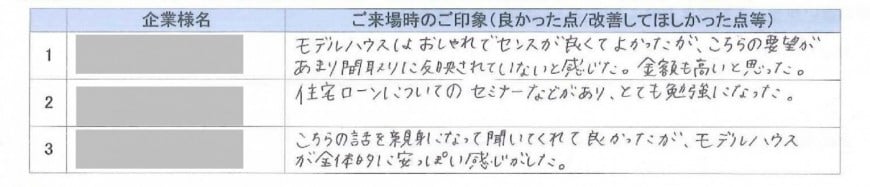 企業様名 ご来場時のご印象(良かった点/改善してほしかった点等)
1 モデルハウスはおしゃれでセンスが良くてよかったが、こちらの要望が
あまり間取りに反映されていないと感じた。金額も高いと思った。
2 住宅ローンについてのセミナーなどがあり、とても勉強になった。
3 こちらの話を親身になって聞いてくれて良かったが、モデルハウス
が全体的に安っぽい感じがした。